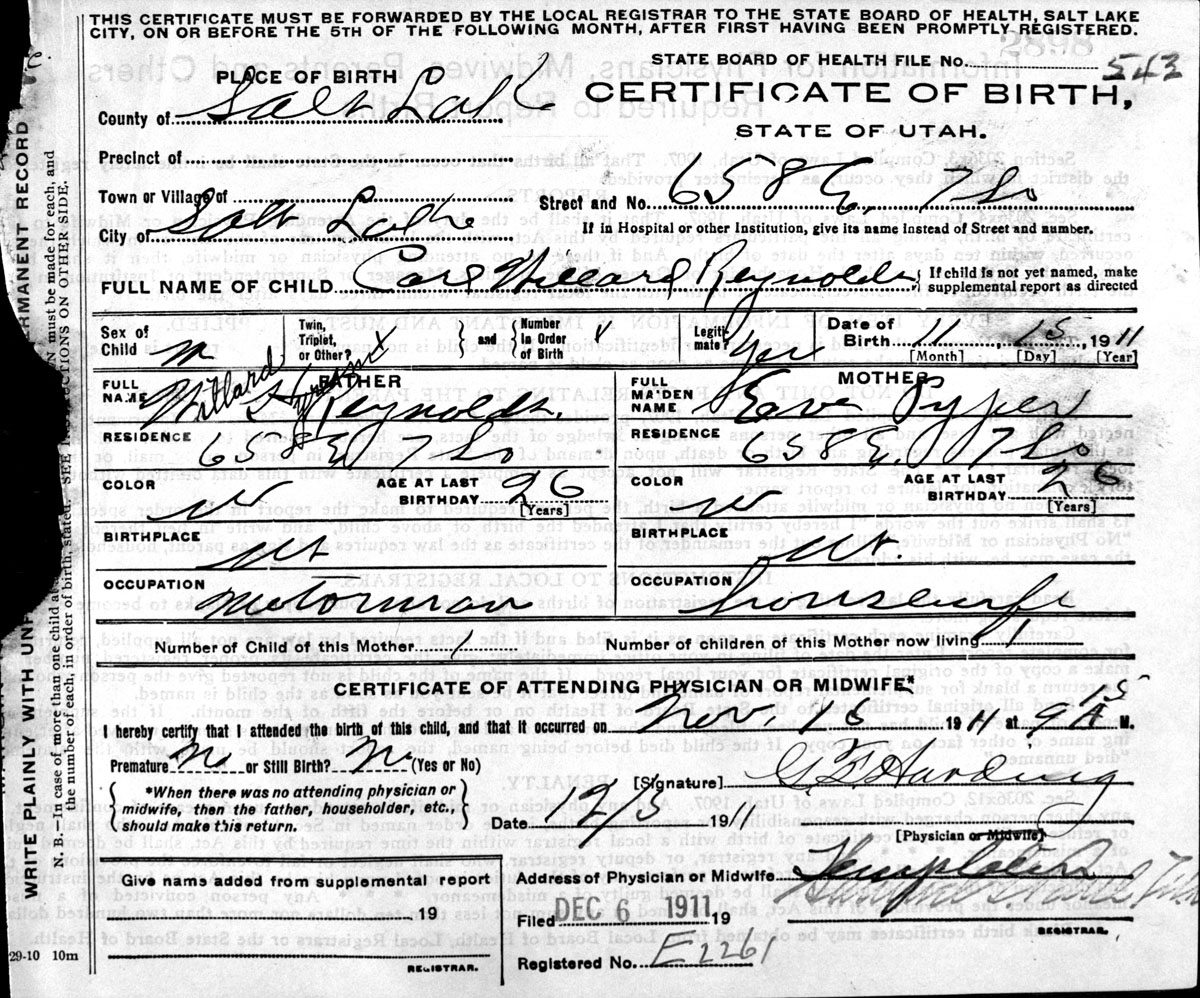 THIS CERTIFICATE MUST BE FORWARDED BY THE LOCAL REGISTRAR TO THE STATE BOARD OF HEALTH, SALT LAKE
CITY, ON OR BEFORE THE 5TH OF THE FOLLOWING MONTH, AFTER FIRST HAVING BEEN PROMPTLY REGISTERED.
2898
STATE BOARD OF HEALTH FILE No. 543
PLACE OF BIRTH
CERTIFICATE OF BIRTH,
County of Salt Lake
STATE OF UTAH.
Precinct of
Town or Village of
Street and No. 658 E. 7 So
City of Salt Lake
If in Hospital or other Institution, give its name instead of Street and number.
FULL NAME OF CHILD Carl Willard Reynolds { If child is not yet named, make supplemental report as directed
Sex of Child m
Twin, Triplet, or Other?
and { Number in Order of Birth 1
Legitimate? Yes
Date of Birth 11 15 1911
[Month] [Day] [Year]
FATHER
FULL NAME Willard Reynolds.
MOTHER
FULL MAIDEN NAME Eava Pyper
RESIDENCE 658 E 7 So
RESIDENCE 658 E. 7 So
COLOR W
AGE AT LAST BIRTHDAY 26
[Years]
COLOR W
AGE AT LAST BIRTHDAY 26
[Years]
BIRTHPLACE Ut
BIRTHPLACE Ut.
OCCUPATION Motorman
OCCUPATION housewife
Number of Child of this Mother 1
Number of children of this Mother now living 1
CERTIFICATE OF ATTENDING PHYSICIAN OR MIDWIFE*
I hereby certify that I attended the birth of this child, and that it occurred on Nov 15 1911 at 9 A M.
Premature No or Still Birth? No (Yes or No)
[Signature] Harding
{ *When there was no attending physician or
midwife, then the father, householder, etc.,
should make this return. }
Date 12/5 1911
[Physician or Midwife]
Address of Physician or Midwife Templeton
Give name added from supplemental report
19
REGISTRAR.
Filed DEC 6 1911 19
REGISTRAR.
Registered No. E2261
29-10 10m
WRITE PLAINLY WITH UNF
RMANENT RECORD
N. B.—In case of more than one child at
N must be made for each, and
the number of each, in order of birth, stated. SEE
CTIONS ON OTHER SIDE.